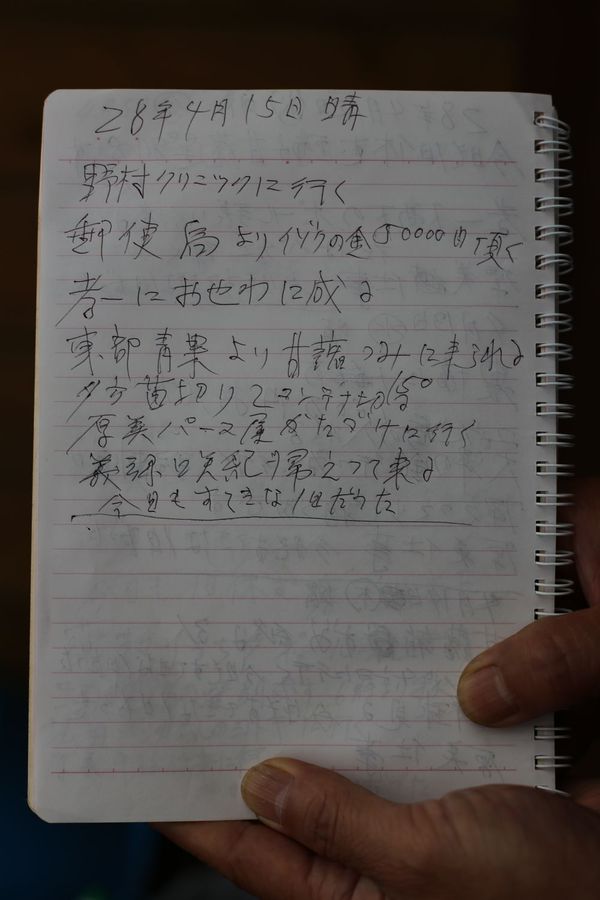 28年4月15日 晴
野村クリニックに行く
郵便局よりイゾクの金50000円頂く
孝一におせわに成る
東部青果より甘藷つみに来られる
夕方苗切り
厚美パース屋かたずけに行く
咲紀帰えつて来る
今日もすてきな1日だった